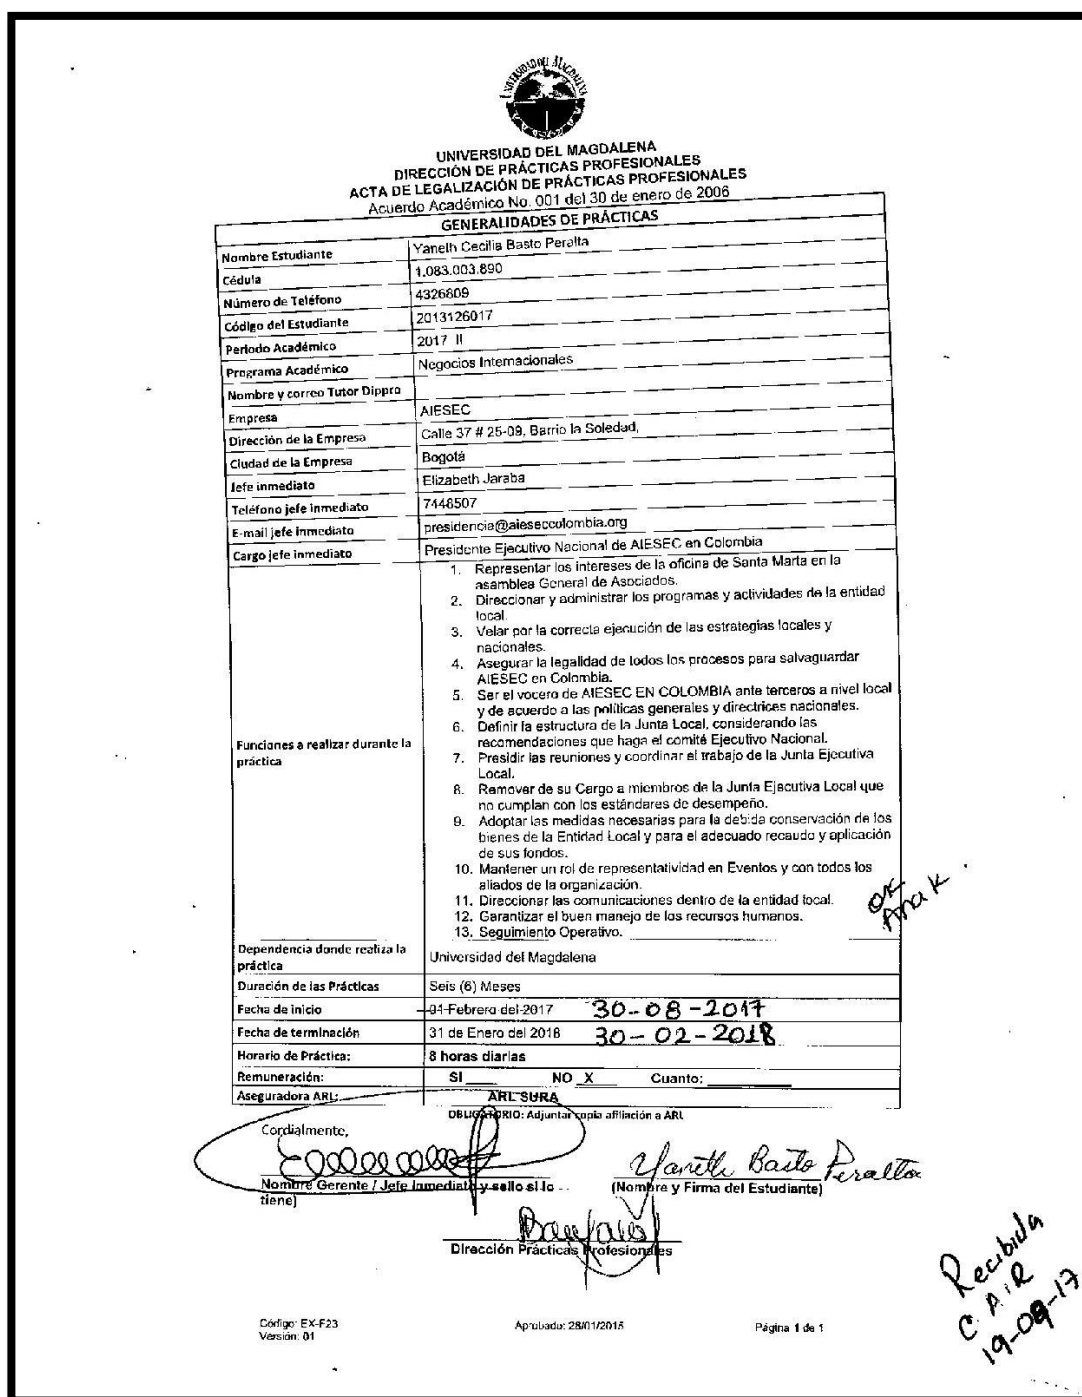 UNIVERSIDAD DEL MAGDALENA
UNIVERSIDAD DEL MAGDALENA
DIRECCIÓN DE PRÁCTICAS PROFESIONALES
ACTA DE LEGALIZACIÓN DE PRÁCTICAS PROFESIONALES
Acuerdo Académico No. 001 del 30 de enero de 2006
GENERALIDADES DE PRÁCTICAS
Nombre Estudiante Yaneth Cecilia Basto Peralta
Cédula 1.083.003.890
Número de Teléfono 4326809
Código del Estudiante 2013126017
Periodo Académico 2017 II
Programa Académico Negocios Internacionales
Nombre y correo Tutor Dippro
Empresa AIESEC
Dirección de la Empresa Calle 37 # 25-09, Barrio la Soledad,
Ciudad de la Empresa Bogotá
Jefe inmediato Elizabeth Jaraba
Teléfono jefe inmediato 7448507
E-mail jefe inmediato presidencia@aieseccolombia.org
Cargo jefe inmediato Presidente Ejecutivo Nacional de AIESEC en Colombia
Funciones a realizar durante la
práctica
1. Representar los intereses de la oficina de Santa Marta en la
asamblea General de Asociados.
2. Direccionar y administrar los programas y actividades de la entidad
local.
3. Velar por la correcta ejecución de las estrategias locales y
nacionales.
4. Asegurar la legalidad de todos los procesos para salvaguardar
AIESEC en Colombia.
5. Ser el vocero de AIESEC EN COLOMBIA ante terceros a nivel local
y de acuerdo a las políticas generales y directrices nacionales.
6. Definir la estructura de la Junta Local, considerando las
recomendaciones que haga el comité Ejecutivo Nacional.
7. Presidir las reuniones y coordinar el trabajo de la Junta Ejecutiva
Local.
8. Remover de su Cargo a miembros de la Junta Ejecutiva Local que
no cumplan con los estándares de desempeño.
9. Adoptar las medidas necesarias para la debida conservación de los
bienes de la Entidad Local y para el adecuado recaudo y aplicación
de sus fondos.
10. Mantener un rol de representatividad en Eventos y con todos los
aliados de la organización.
11. Direccionar las comunicaciones dentro de la entidad local.
12. Garantizar el buen manejo de los recursos humanos.
13. Seguimiento Operativo.
OK
Ana K
Dependencia donde realiza la
práctica
Universidad del Magdalena
Duración de las Prácticas Seis (6) Meses
Fecha de inicio 01 Febrero del 2017 30-08-2017
Fecha de terminación 31 de Enero del 2018 30-02-2018
Horario de Práctica: 8 horas diarias
Remuneración: SI ____ NO _X_ Cuanto: ____
Aseguradora ARL: ARL SURA
OBLIGATORIO: Adjuntar copia afiliación a ARL
Cordialmente,
Yaneth Basto Peralta
Nombre Gerente / Jefe Inmediato y sello si lo
tiene)
(Nombre y Firma del Estudiante)
Dirección Prácticas Profesionales
Recibida
C.A.I.R
19-09-17
Código: EX-F23
Versión: 01
Aprobado: 28/01/2015
Página 1 de 1